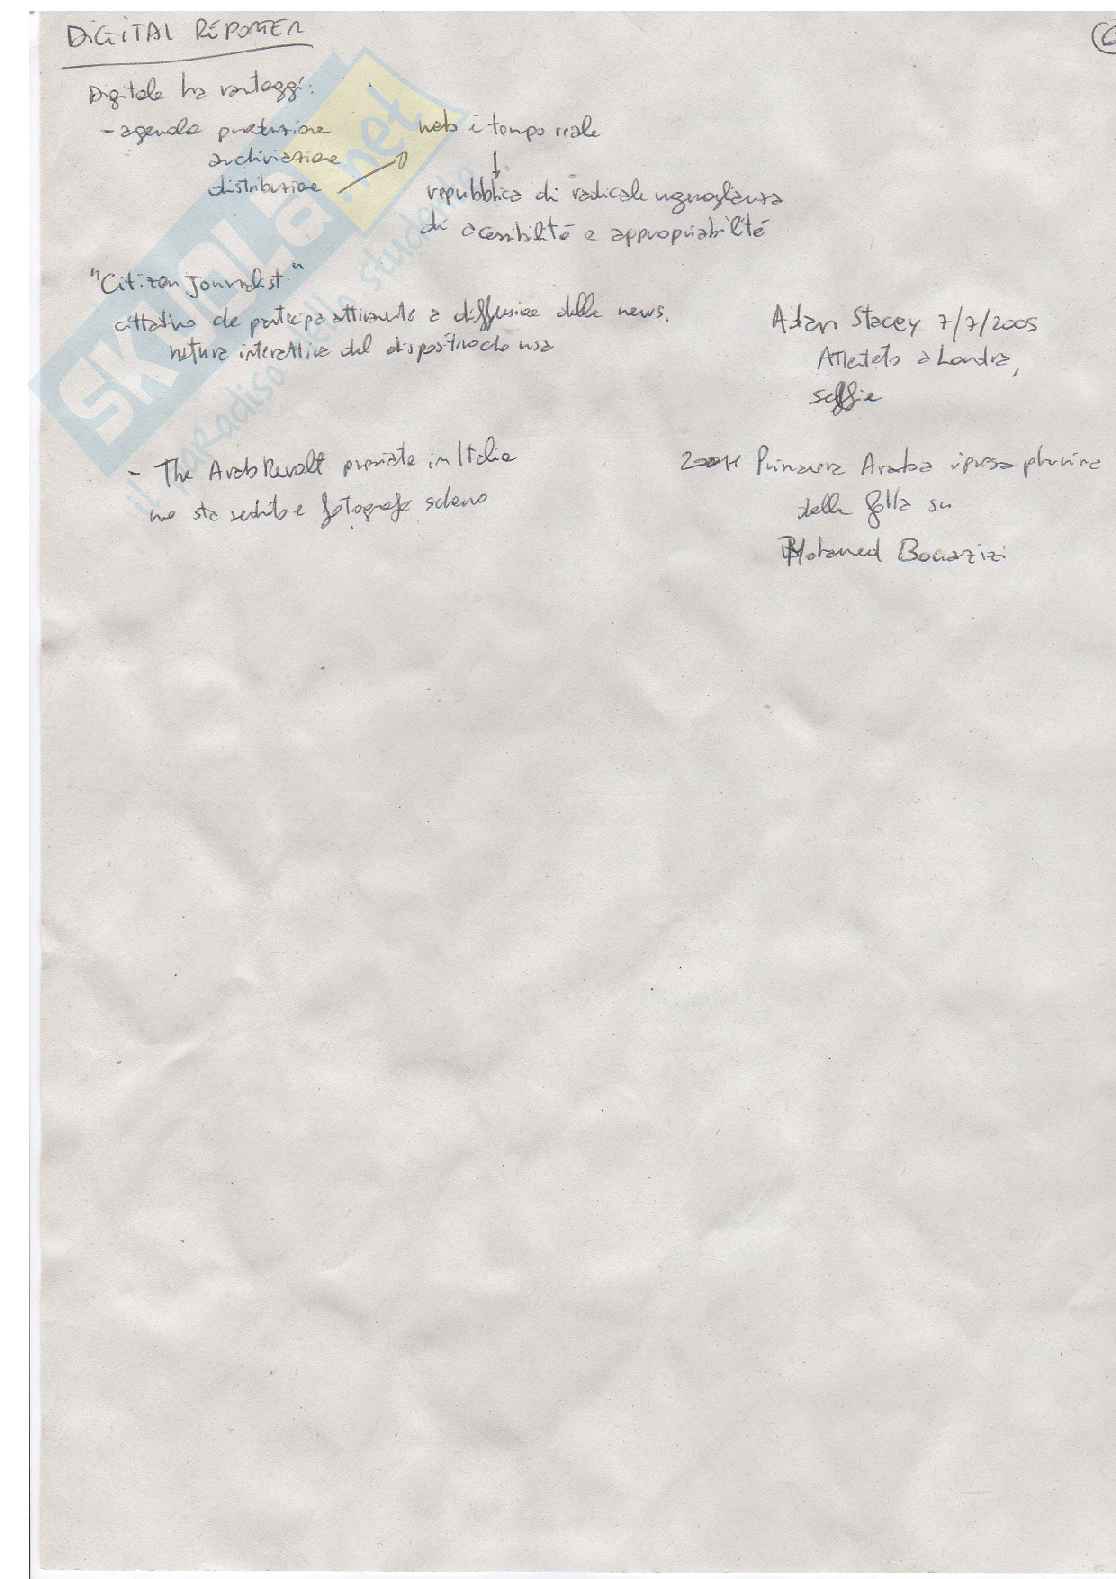 DIGITAL REPORTER
6
Digitale ha vantaggi:
- agevola produzione
archiviazione
distribuzione
web è tempo reale
repubblica di radicale uguaglianza
di acessibilità e appropriabilità
"Citizen Journalist"
cittadino che partecipa attivamente a diffusione delle news.
natura interattiva del dispositivo che usa
Adam Stacey 7/7/2005
Attentato a Londra,
selfie
- The Arab Revolt in Italia
e fotografa schermo
Primavera Araba ripresa
della folla su
Mohamed Bouazizi
SKUOLA.net
il paradiso dello studente